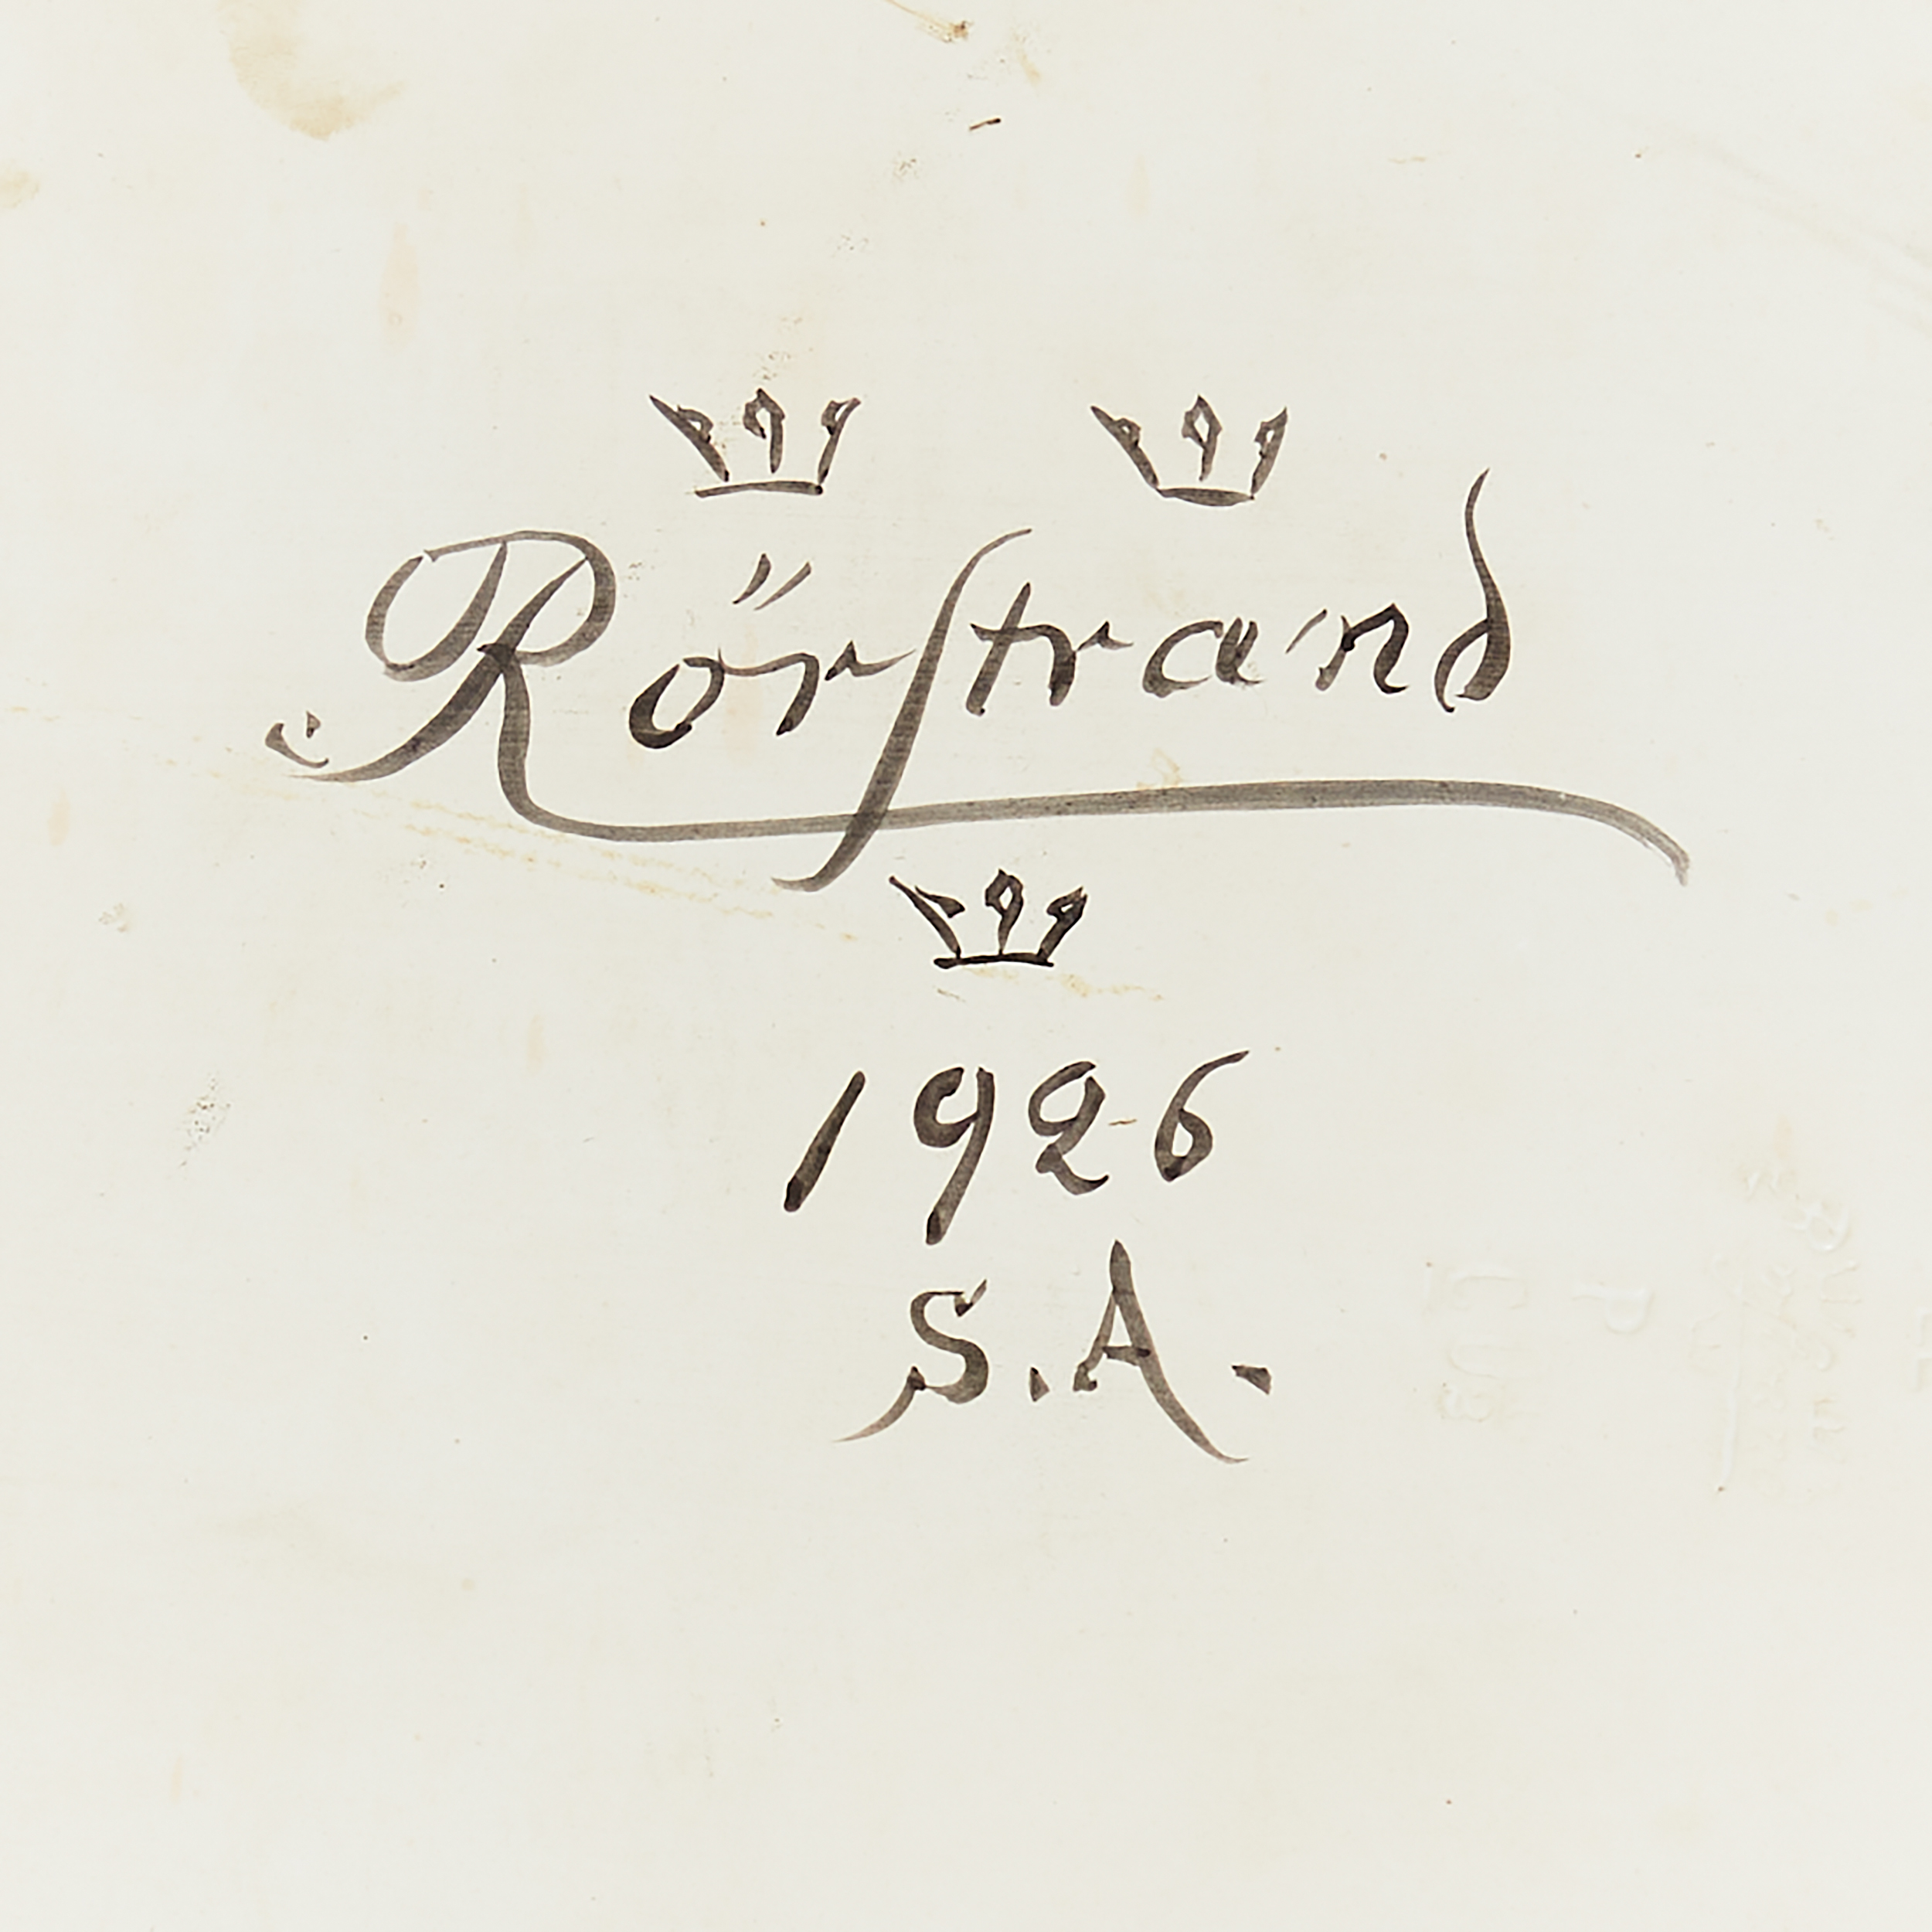 Rörstrand
1926
S.A.